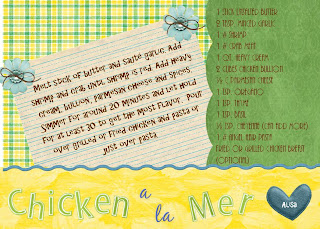 Melt stick of butter and saute garlic. Add
shrimp and crab until shrimp is red. Add heavy
cream, bullion, parmesan cheese and spices.
Simmer for around 20 minutes and let mold
for at least 30 to get the most flavor. Pour
over grilled or fried chicken and pasta or
just over pasta
1 stick
butter
2 tbsp. minced garlic
1 # shrimp
1 # crab meat
1 qt. heavy cream
2 cubes chicken bullion
3/4 c parmesan cheese
1 tsp. oregano
1 tsp. thyme
1 tsp. basil
1/2 tsp. cheyenne (can add more)
1 # angel hair pasta
fried or grilled chicken breast
(optional)
Chicken a la Mer
Alisa